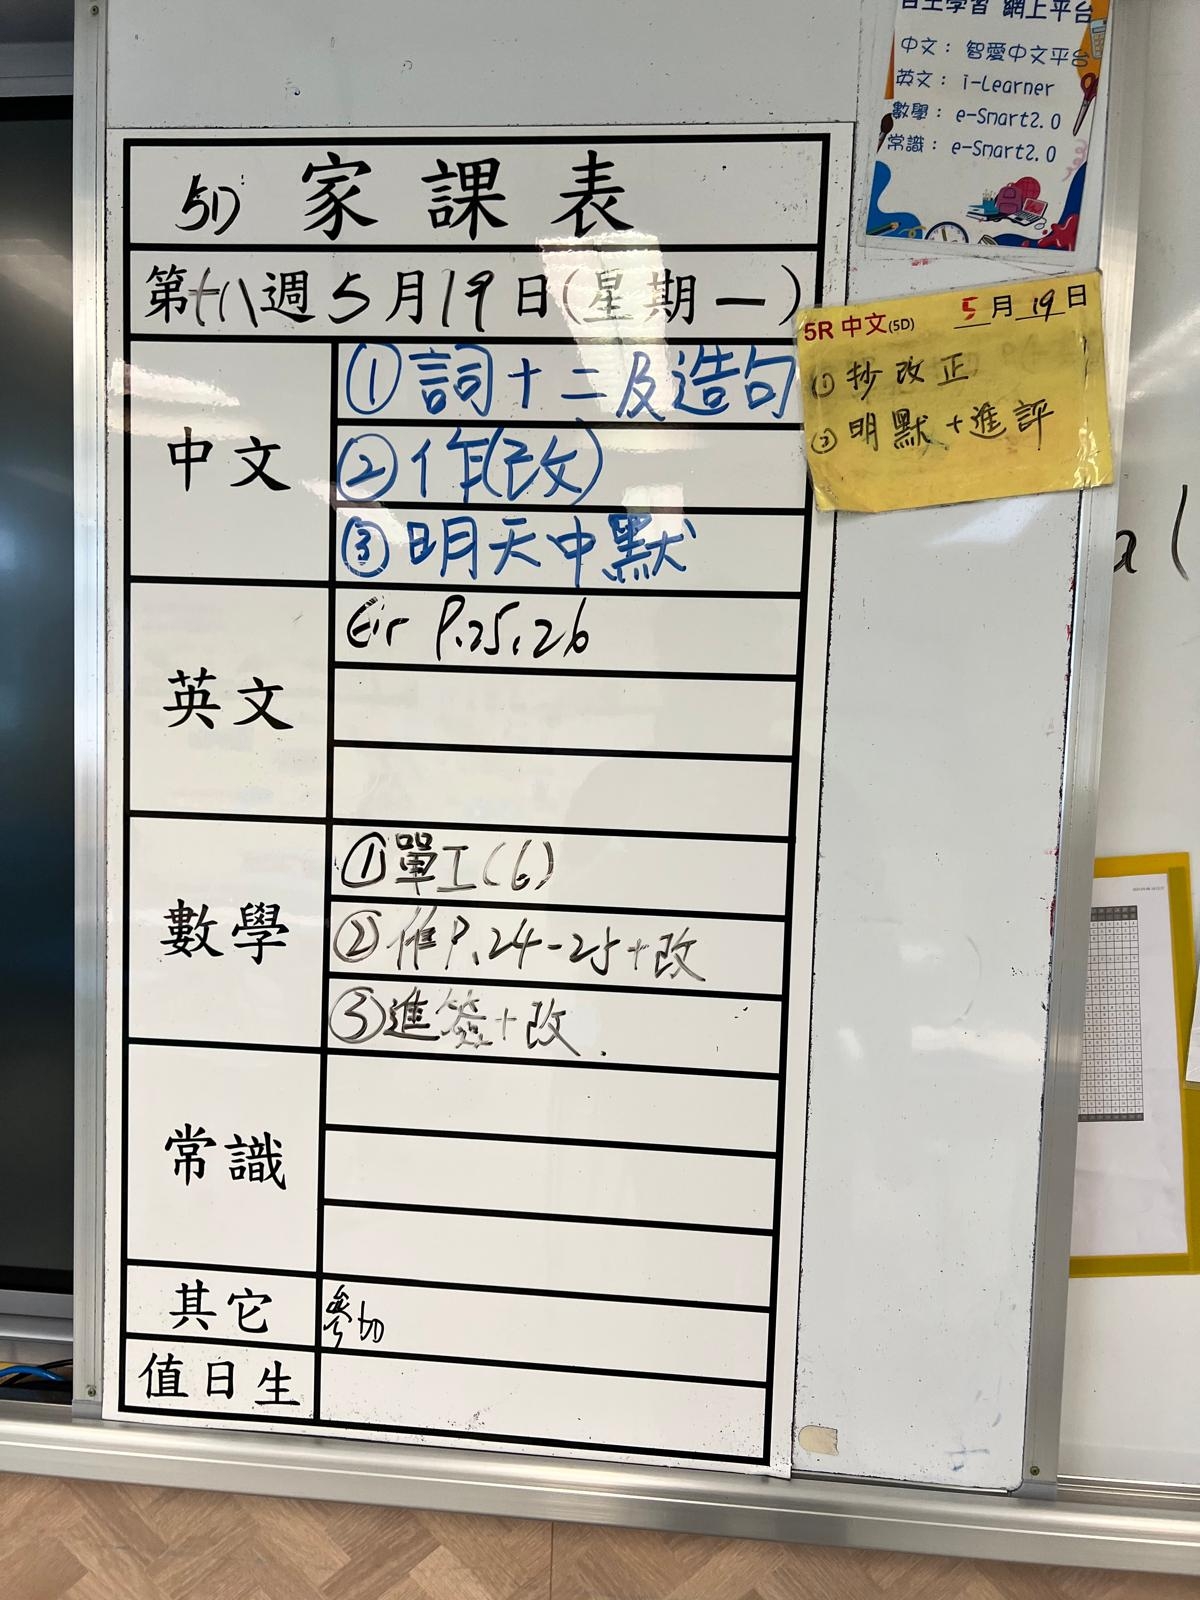 自主學習 網上平台
中文： 智愛中文平台
英文： i-Learner
數學： e-Smart2.0
常識： e-Smart2.0
5D 家課表
第十八週5月19日(星期一)
5R 中文(5D) 5月19日
① 抄改正
② 明默+進評
中文
①詞十二及造句
②作(改)
③明天中默
英文
P.25,26
數學
①單工(6)
②作P.24-25+改
③進簽+改.
常識
其它
參加
值日生
a (